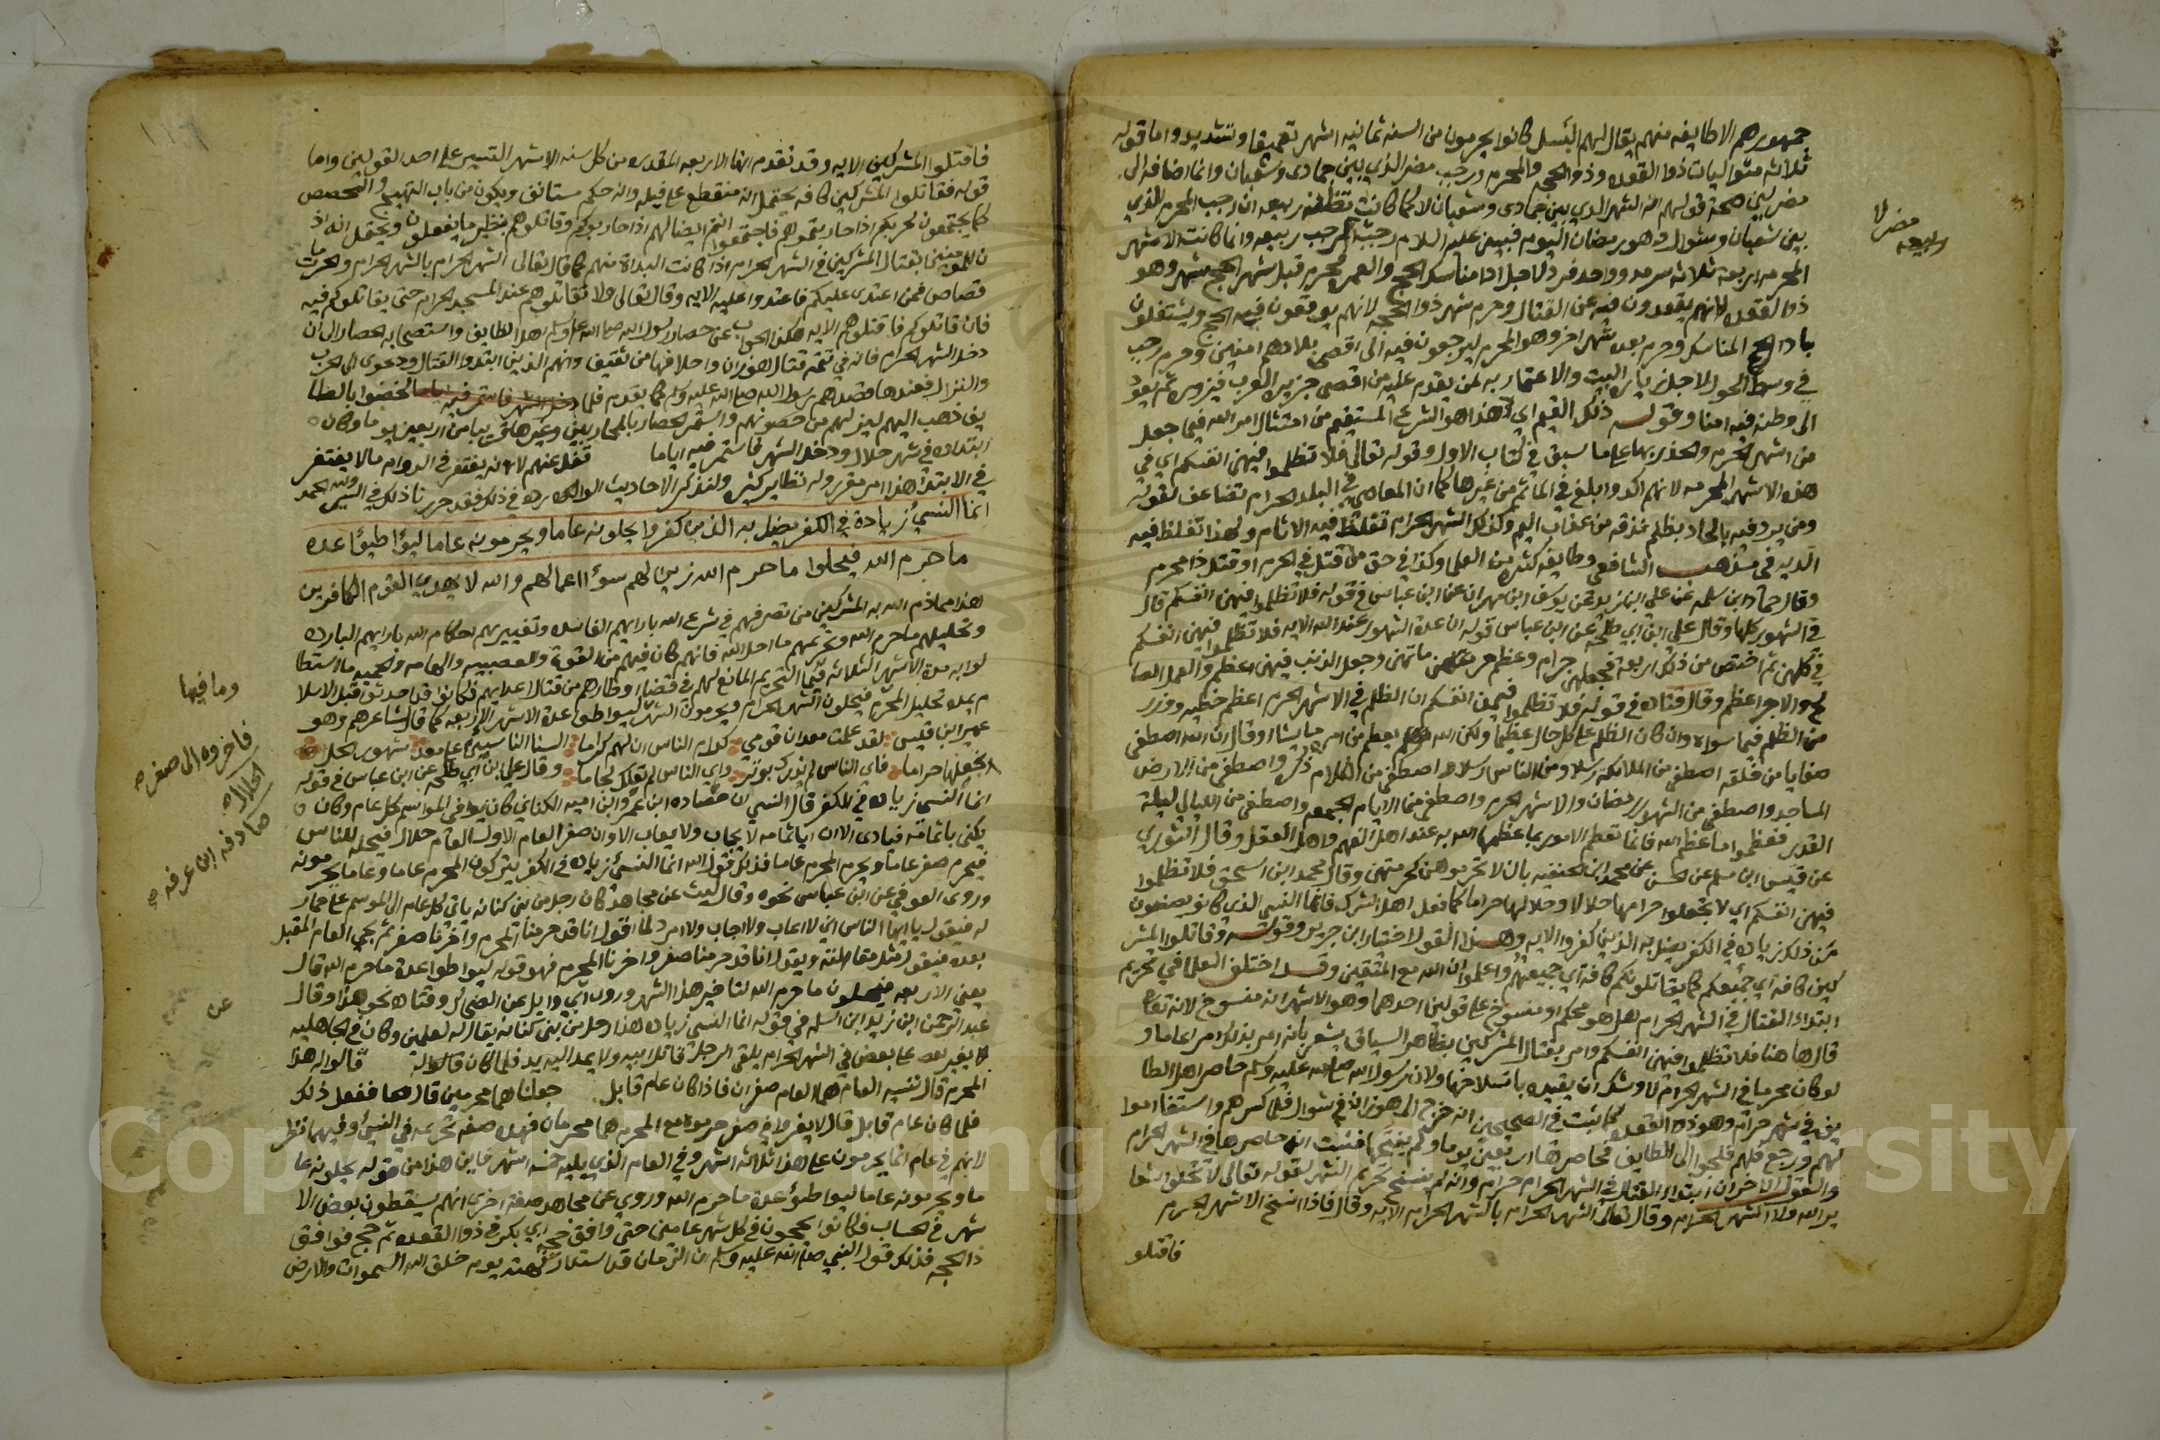 جمهورهم الا طايفه منهم يقال لهم البسل كانوا يحرمون من السنه ثمانيه اشهر تعميقا وتشديدا واما قوله
ثلاثه متواليات ذوا القعده وذو الحجه والمحرم ورجب مضر الذي بين جمادى وشعبان وانما اضافه الى
مضر ليبين صحة قولهم انه الشهر الذي بين جمادى وشعبان لا كما كانت تظنه ربيعه ان رجب المحرم الذي
بين شعبان وشوال وهو رمضان اليوم فبين عليه السلام رجب مضر لا رجب ربيعه وانما كانت الاشهر
المحرمه اربعه ثلاثه سرد وواحد فرد لاجل ادا مناسك الحج والعمره فحرم قبل شهر الحج شهر وهو
ذو القعده لانهم يقعدون فيه عن القتال وحرم شهر ذوا الحجه لانهم يوقعون فيه الحج ويشتغلون
باداء المناسك وحرم بعده شهر اخر وهو المحرم ليرجعون فيه الى اقصى بلادهم امنين وحرم رجب
في وسط الحول لاجل زيارة البيت والاعتمار به لمن يقدم عليه من اقصى جزيرة العرب فيزوره ثم يعود
الى وطنه فيه امنا وقوله ذلك الدين القيم اي هذا هو الشرع المستقيم من امتثال امر الله فيما جعل
من اشهر الحرم والحذر بها على ما سبق في كتاب الاول وقوله تعالى فلا تظلموا فيهن انفسكم اي في
هذه الاشهر المحرمه لانهم اكد وابلغ في الماثم من غيرها كما ان المعاصي في البلد الحرام تضاعف لقوله
ومن يرد فيه بالحاد بظلم نذقه من عذاب اليم وكذلك الشهر الحرام تغلظ فيه الاثام ولهذا تغلظ فيه
الديه في مذهب الشافعي وطايفه كثيره من العلما وكذا في حق من قتل في الحرم او قتل ذا محرم
وقال حماد ابن سلمه عن علي ابن زيد عن يوسف ابن مهران عن ابن عباس في قوله فلا تظلموا فيهن انفسكم قال
في الشهور كلها وقال علي ابن ابي طلحه عن ابن عباس قوله ان عدة الشهور عند الله الايه فلا تظلموا فيهن انفسكم
في كلهن ثم اختص من ذلك اربعه فجعلهن حرام وعظم حرماتهن وجعل الذنب فيهن اعظم والعمل الصا
لح والاجر اعظم وقال قتاده في قوله فلا تظلموا فيهن انفسكم ان الظلم في الاشهر الحرم اعظم خطيه ووزر
من الظلم فيما سواه وان كان الظلم على كل حال عظيما ولكن الله يعظم من امره ما يشا وقال ان الله اصطفى
صفايا من خلقه اصطفى من الملايكه رسلا ومن الناس رسلا واصطفى من الكلام ذكره واصطفى من الارض
المساجد واصطفى من الشهور رمضان والاشهر الحرم واصطفى من الايام الجمعه واصطفى من الليالي ليلة
القدر فعظموا ما عظم الله فانما تعظم الامور بما عظمها الله به عند اهل الفهم واهل العقل وقال الثوري
عن قيس ابن مسلم عن الحسن عن محمد ابن الحنفيه بان لا تحرموهن كحرمتهن وقال محمد ابن اسحق فلا تظلموا
فيهن انفسكم اي لا تجعلوا حرامها حلالا وحلالها حراما كما فعل اهل الشرك فانما النسي الذي كانوا يصنعون
من ذلك زياده في الكفر يضل به الذين كفروا الايه وهذا القول اختيار ابن جرير وقوله وقاتلوا المشر
كين كافه اي جميعكم كما يقاتلونكم كافه اي جميعهم واعلموا ان الله مع المتقين وقد اختلف العلما في تحريم
ابتداء القتال في الشهر الحرام هل هو محكم او منسوخ على قولين احدهما وهو الاشهر انه منسوخ لانه تعالى
قال هاهنا فلا تظلموا فيهن انفسكم وامر بقتال المشركين بظاهر السياق يشعر بانه امر بذلك امرا عاما و
لو كان محرما في الشهر الحرام لاوشك ان يقيده بانسلاخها ولان رسول الله صلى الله عليه وسلم حاصر اهل الطا
يف في شهر حرام وهو ذو القعده كما ثبت في الصحيحين انه خرج الى هوازن في شوال فلما كسرهم واستفا اموا
لهم ورجع فلهم فلجوا الى الطايف فحاصرها اربعين يوما ولم يفتحها فثبت انه حاصرها في الشهر الحرام
والقول الاخر ان ابتداء القتال في الشهر الحرام حرام وانه لم ينسخ تحريم الشهر لقوله تعالى لا تحلوا شعا
ير الله ولا الشهر الحرام وقال تعالى الشهر الحرام بالشهر الحرام الايه وقال فاذا انسلخ الاشهر الحرم
فاقتلو
مضر لا
ربيعه
فاقتلوا المشركين الايه وقد تقدم انها الاربعه المقدره من كل سنه لا اشهر التسيير على احد القولين واما
قوله فقاتلوا المشركين كافه يحتمل انه منقطع عما قبله وانه حكم مستانف ويكون من باب التهييج والتحضيض
كما يجتمعون لحربكم اذا حاربتموهم فاجتمعوا انتم ايضا لهم اذا حاربوكم وقاتلوهم بنظير ما يفعلون ويحتمل انه اذ
ن للمومنين بقتال المشركين في الشهر الحرام اذا كانت البداة منهم كما قال تعالى الشهر الحرام بالشهر الحرام والحرمات
قصاص فمن اعتدى عليكم فاعتدوا عليه الايه وقال تعالى ولا تقاتلوهم عند المسجد الحرام حتى يقاتلوكم فيه
فان قاتلوكم فاقتلوهم الايه هكذا الجواب عن حصار رسول الله صلى الله عليه وسلم اهل الطايف واستصحابه الحصار الى ان
دخل الشهر الحرام فانه في تتمة قتال هوازن واحلافها من ثقيف وانهم الذين ابتدوا القتال ودعوى الى الحرب
والنزال فعندها قصدهم رسول الله صلى الله عليه وسلم كما تقدم فلما تحصنوا بالطا
يف ذهب اليهم لينزلهم من حصونهم واستمر الحصار بالمجانيق وغيرها قريبا من اربعين يوما وكان
ابتداه في شهر حلال ودخل الشهر فاستمر فيه اياما ثم قفل عنهم لانه يغتفر في الدوام مالا يغتفر
في الابتدا هذا امر مقرر وله نظاير كثيره ولنذكر الاحاديث الوارده في ذلك وقد حررنا ذلك في السيره ولله الحمد
انما النسيء زيادة في الكفر يضل به الذين كفروا يحلونه عاما ويحرمونه عاما ليواطئوا عدة
ما حرم الله فيحلوا ما حرم الله زين لهم سوء اعمالهم والله لا يهدي القوم الكافرين
هذا مما ذم الله به المشركين من تصرفهم في شرع الله بارايهم الفاسده وتغييرهم احكام الله بارايهم البارده
وتحليلهم ما حرم الله وتحريمهم ما احل الله فانهم كان فيهم من القوة والعصبيه والشهامه والحميه ما استطا
لوا به مدة الاشهر الثلاثه في التحريم المانع لهم من قضاء اوطارهم من قتال اعدايهم فكانوا قد احدثوا قبل الاسلا
م بمده تحليل المحرم فيحلون الشهر الحرام ويحرمون الشهر ليواطوا عدة الاشهر الاربعه كما قال شاعرهم وهو
عمير ابن قيس لقد علمت معد ان قومي كرام الناس ان لهم كراما السنا الناسيين على معد شهور الحل
نجعلها حراما فاي الناس لم ندرك بوتر واي الناس لم نعلك لجاما وقال علي ابن ابي طلحه عن ابن عباس في قوله
انما النسي زياده في الكفر قال النسي ان جناده ابن عمرو ابن اميه الكناني كان يوافي المواسم كل عام وكان
يكنى باثمامه فينادى الا ان ابا ثمامه لا يجاب ولا يعاب الا وان صفر العام الاول العام حلال فيحله للناس
فيحرم صفر عاما ويحرم المحرم عاما فذلك قول الله انما النسي زياده في الكفر يتركون المحرم عاما وعاما يحرمونه
وروى العوفي عن ابن عباس نحوه وقال ليث عن مجاهد كان رجل من بني كنانه ياتي كل عام الى الموسم على حمار
له فيقول يا ايها الناس اني لا اعاب ولا اجاب ولا مرد لما اقول انا قد حرمنا المحرم واخرنا صفر ثم يجي العام المقبل
بعده فيقول مثل مقالته ويقول انا قد حرمنا صفر واخرنا المحرم فهو قوله ليواطوا عدة ما حرم الله قال
يعني الاربعه فيحلون ما حرم الله لتاخير هذا الشهر وروى ابي وايل عن الضحاك وقتاده نحو هذا وقال
عبد الرحمن ابن زيد ابن اسلم في قوله انما النسي زياده هذا رجل من بني كنانه يقال له القلمس وكان في الجاهليه
لا يغير بعضهم على بعض في الشهر الحرام يلقى الرجل قاتل ابيه ولا يمد اليه يده فلما كان قال له قالوا له هذا
المحرم قال ننسيه العام هما العام صفران فاذا كان عام قابل جعلناهما محرمين قال هما ففعل ذلك
فلما كان عام قابل قال لا يغزوا في صفر حرموه مع المحرم هما محرمان فهذه صفه تحريمه في النسي وفيهما نظر
لانهم في عام انما يحرمون على هذا ثلاثه اشهر وفي العام الذي يليه خمسه اشهر فاين هذا من قوله يحلونه عا
ما ويحرمونه عاما ليواطئوا عدة ما حرم الله وروي عن مجاهد صفه اخرى انهم يسقطون بعض الا
شهر في الحساب فكانوا يحجون في كل شهر عامين حتى وافق حجة ابي بكر في ذوا القعده ثم حج فوافق
ذا الحجه فذلك قول النبي صلى الله عليه وسلم ان الزمان قد استدار كهيئته يوم خلق الله السموات والارض
وما فيها
فاخروه الى صفر
الحلال
صادفه ان عرفه
عن
Copyright © King Saud University